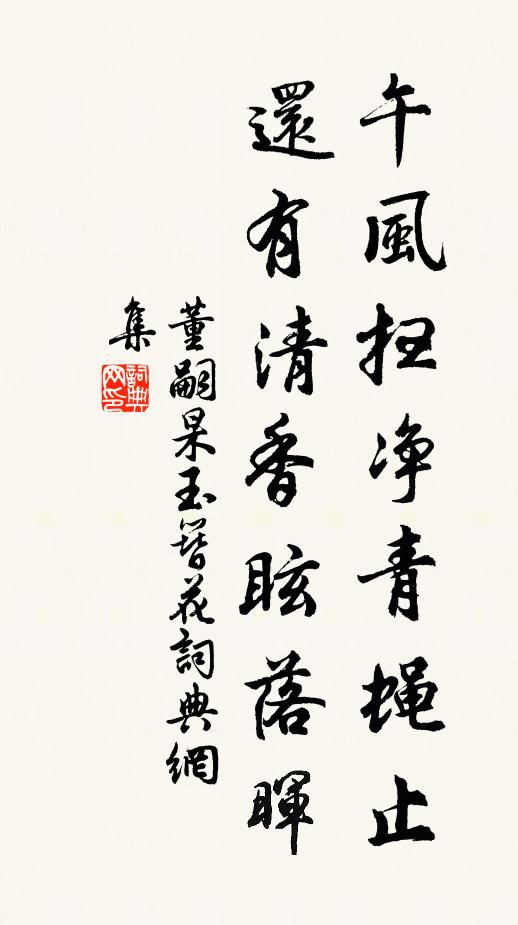 午風扫净青蝇止
還有清香眩落暉
董嗣杲玉簪花詞典網
集
詞典網印